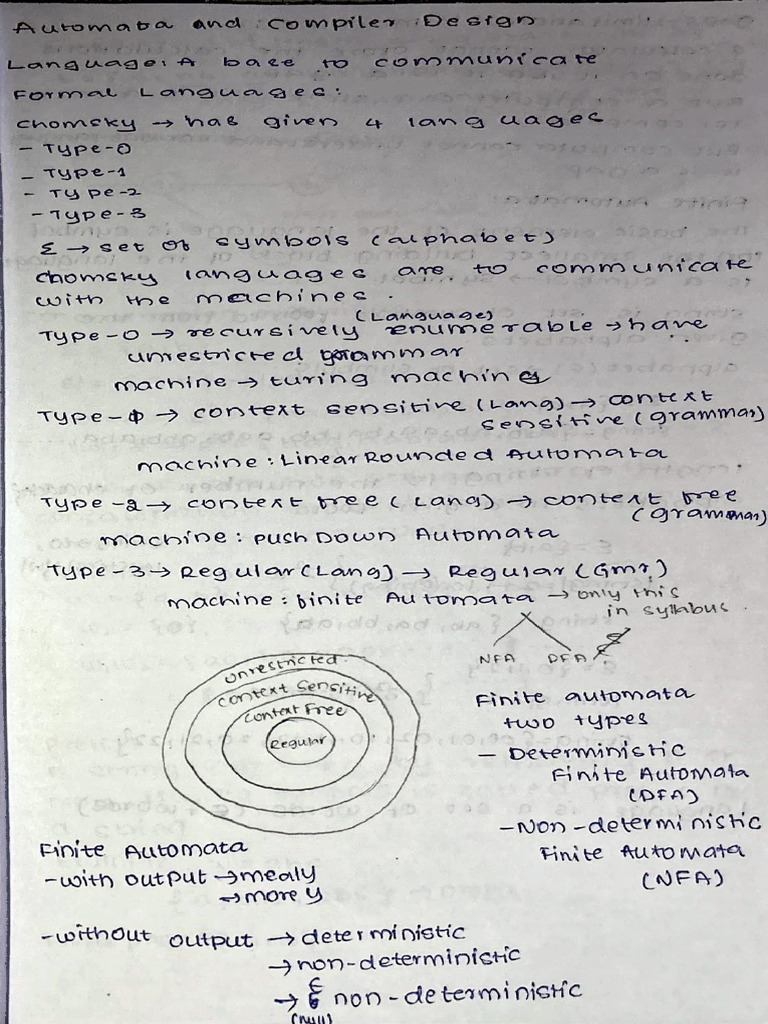 Automata and Compiler Design
Language: A base to communicate
Formal Languages:
Chomsky → has given 4 languages
- Type-0
- Type-1
- Type-2
- Type-3
Σ → set of symbols (alphabet)
Chomsky languages are to communicate
with the machines.
Type-0 → recursively enumerable (Language) → have
unrestricted grammar
machine → turing machines
Type-1 → context sensitive (Lang) → context
sensitive (grammar)
machine: Linear Rounded Automata
Type-2 → context free (Lang) → context free
(grammar)
machine: Push Down Automata
Type-3 → Regular (Lang) → Regular (Gmr)
machine: finite Automata → only this
in syllabus.
NFA DFA
unrestricted
context Sensitive
Context Free
Regular
Finite automata
two types
- Deterministic
Finite Automata
(DFA)
- Non-deterministic
Finite Automata
(NFA)
Finite Automata
- with output → mealy
→ morey
- without output → deterministic
→ non-deterministic
→ ε non-deterministic
(null)